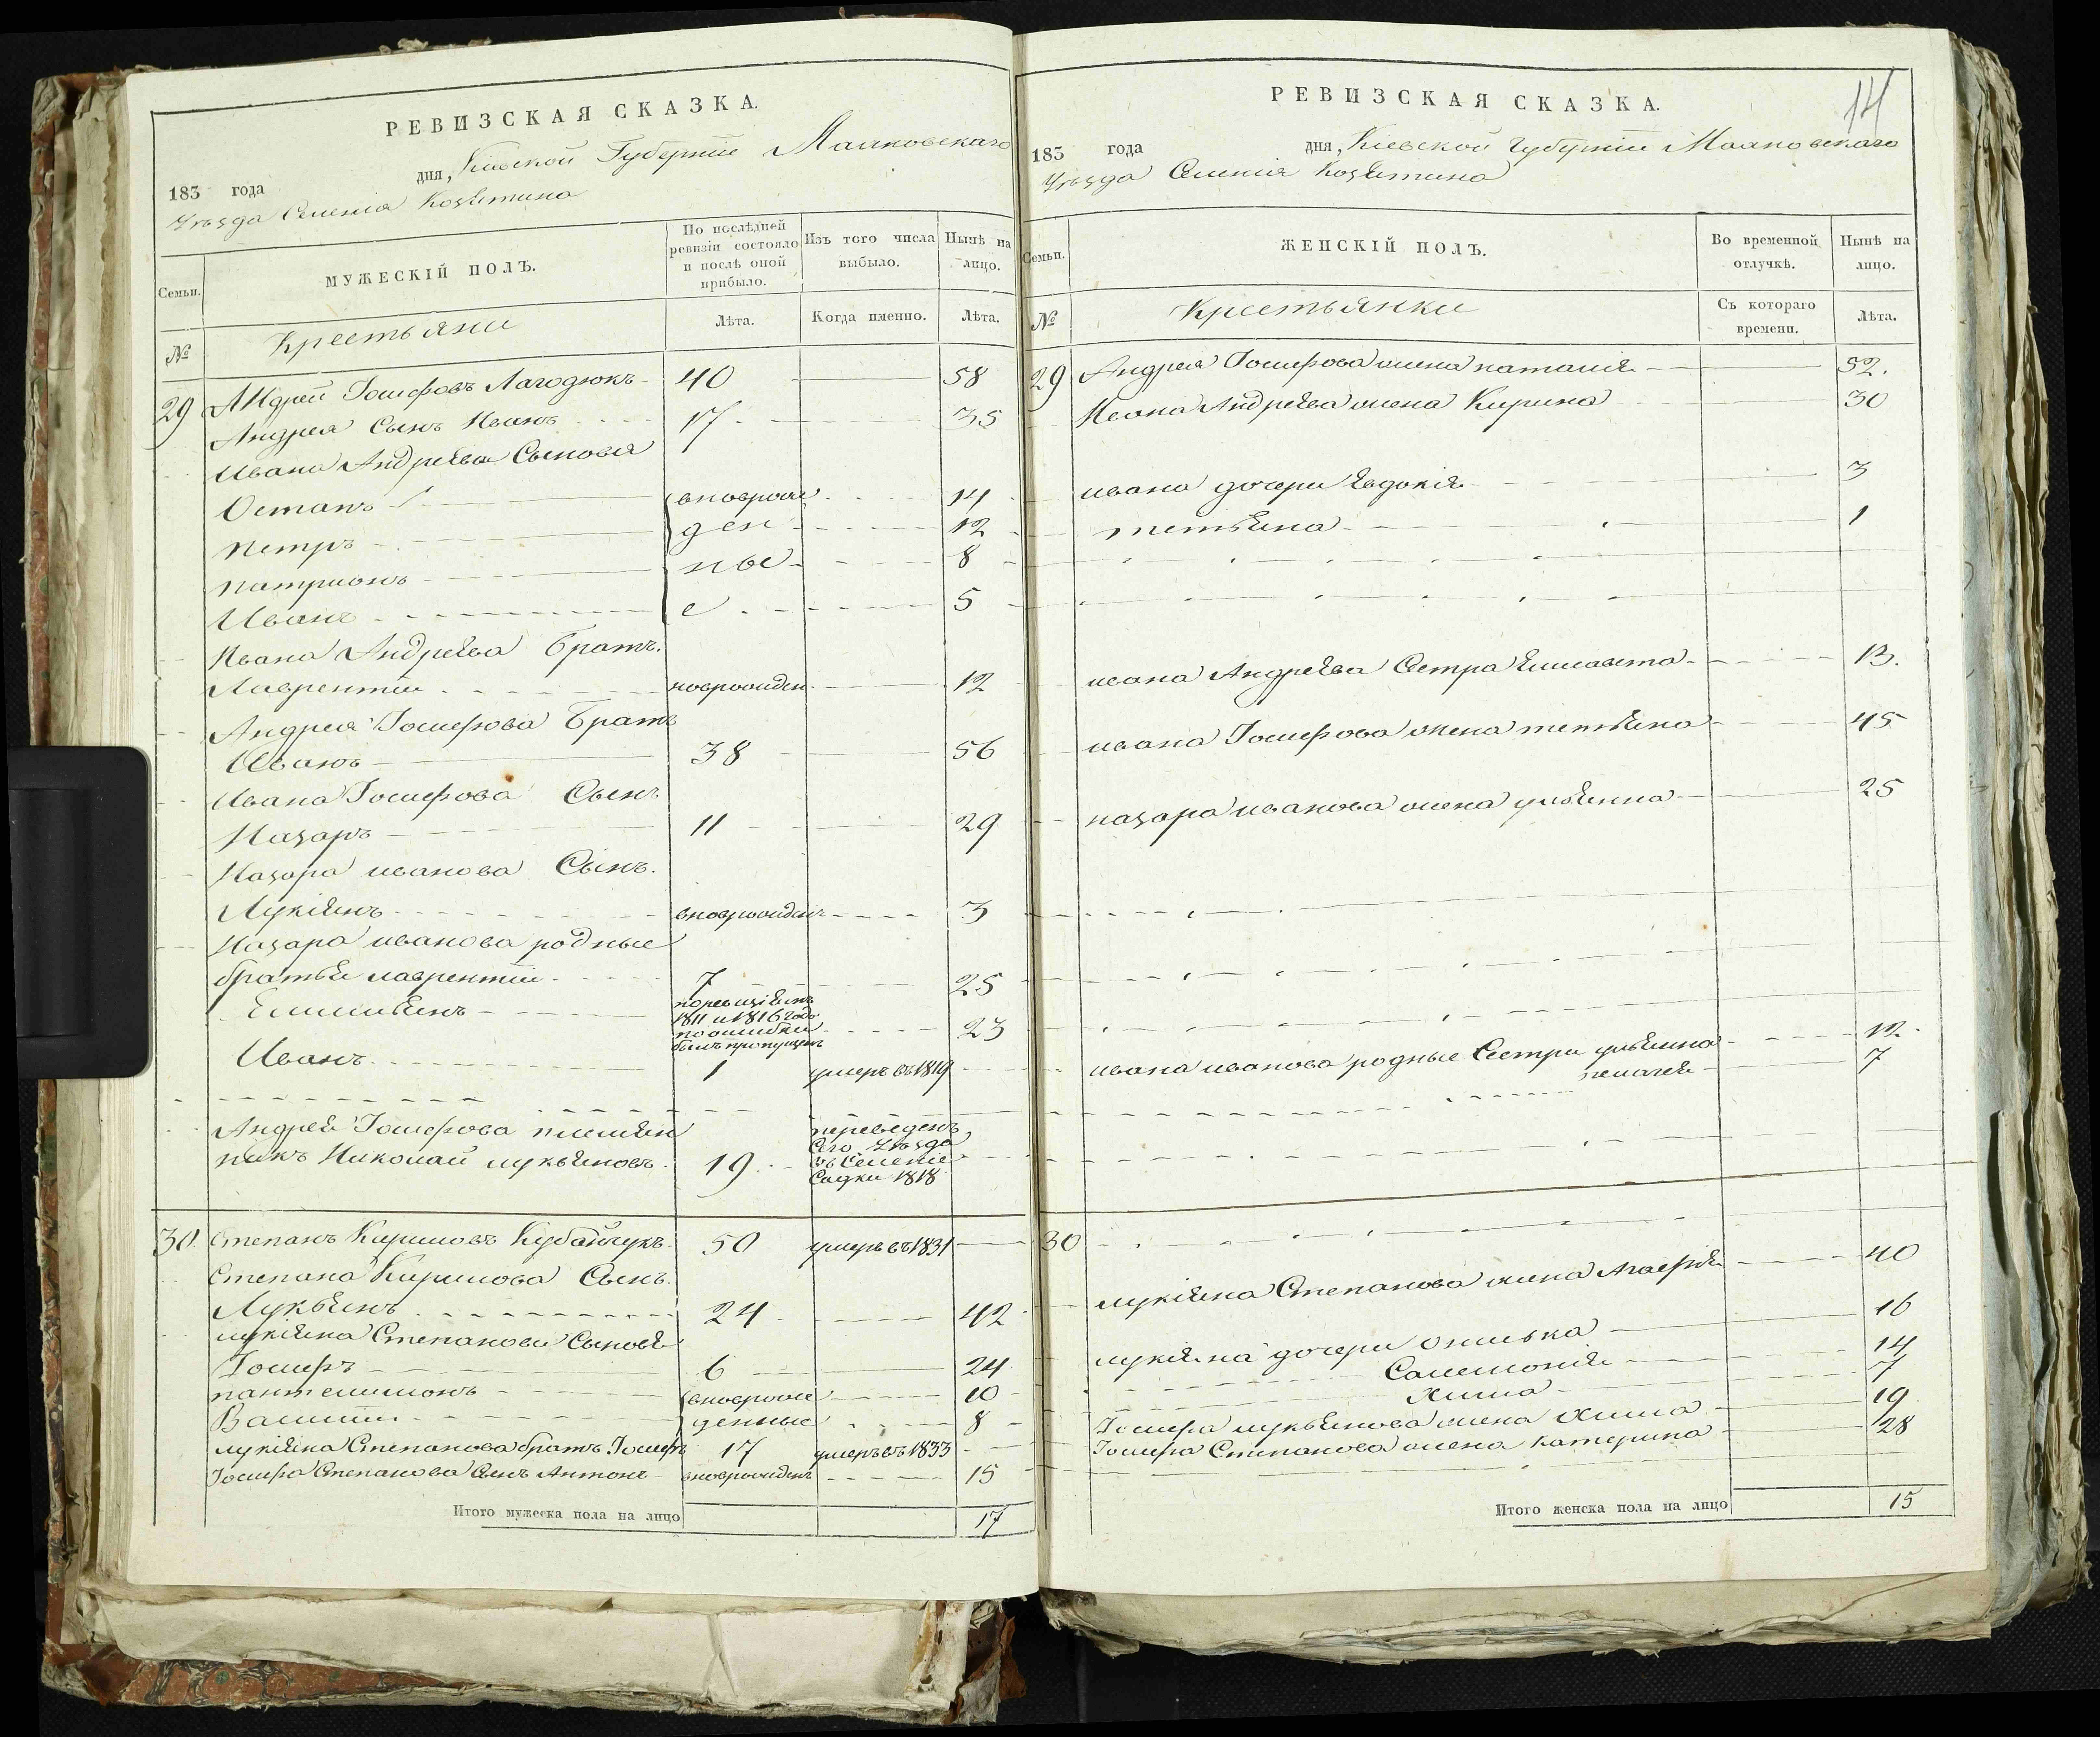 РЕВИЗСКАЯ СКАЗКА.
183 года дня, Кіевской Губерніи Махновскаго
Уѣзда Селенія Козятина
Семьи. МУЖЕСКІЙ ПОЛЪ. По послѣдней ревизіи состояло и послѣ оной прибыло. Изъ того числа выбыло. Нынѣ на лицо.
№ Крестьяни Лѣта. Когда именно. Лѣта.
29 Андрей Іосифовъ Лагодюкъ 40 58
Андрея Сынъ Иванъ 17 35
Ивана Андреева Сыновья
Остапъ вноврож 14
Петръ ден 12
патріонъ ные 8
Иванъ е 5
Ивана Андреева братъ.
Лаврентіи новрожден 12
Андрея Іосифова Братъ
Иванъ 38 56
Ивана Іосифова Сынъ
Назаръ 11 29
Назара иванова Сынъ.
Лукіянъ вноврожден 3
Назара иванова родные
братья лаврентіи 7 25
Емилиянъ
1811 и 1816 года
по ошибки
былъ пропущенъ 23
Иванъ 1 умеръ въ 1819
Андрея Іосифова племян
никъ Николай лукьяновъ 19 переведенъ
Сего Уѣзда
въ Селеніе
Садки 1818
30 Степанъ Кириловъ Кубайчукъ 50 умеръ въ 1831
Степана Кирилова Сынъ.
Лукьянъ 24 42
лукіяна Степанова Сыновья
Іосифъ 6 24
пантелимонъ вноврож 10
Василіи денные 8
лукіяна Степанова братъ Іосифъ 17 умеръ въ 1833
Іосифа Степанова Сынъ Антонъ вноврожденъ 15
Итого мужеска пола на лицо 17
14
РЕВИЗСКАЯ СКАЗКА.
183 года дня, Кіевской Губерніи Махновскаго
Уѣзда Селенія Козятина
Семьи. ЖЕНСКІЙ ПОЛЪ. Во временной отлучкѣ. Нынѣ на лицо.
№ Крестьянки Съ котораго времени. Лѣта.
29 Андрея Іосифова жена наталія 52.
Ивана Андреева жена Кирина 30
ивана дочери Явдокія 3
тетяна 1
ивана Андреева Сестра Елисавета 13.
ивана Іосифова жена тетяна 45
назара иванова жена ульянна 25
ивана иванова родные Сестри ульянна 12
7
30
лукіяна Степанова жена 40
лукіяна дочери 16
Саломонія 14
Химa 7
Іосифа лукьянова жена Хима 19
Іосифа Степанова жена катерина 28
Итого женска пола на лицо 15